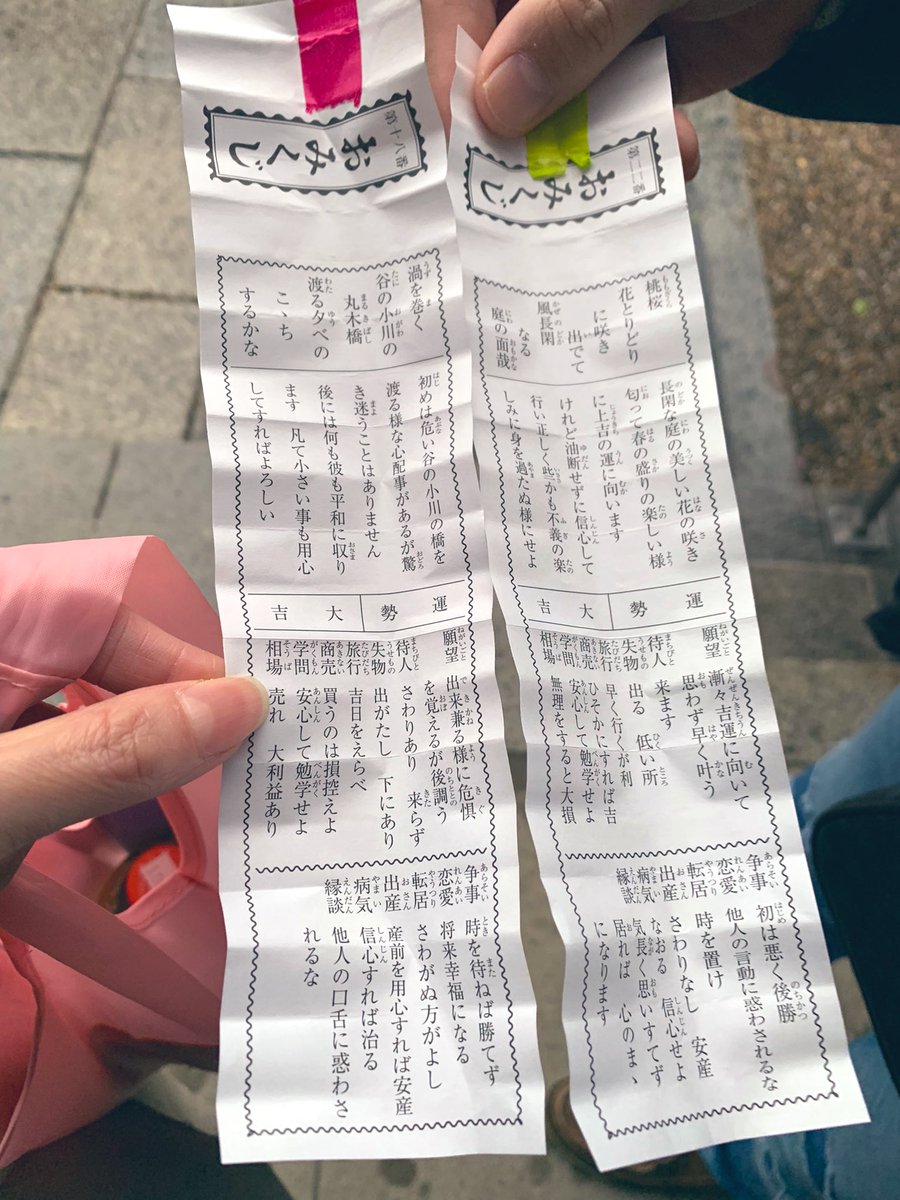 第十八番
おみくじ
渦を巻く
谷の小川の
丸木橋
渡る夕べの
こゝち
するかな
初めは危い谷の小川の橋を
渡る様な心配事があるが驚
き迷うことはありません
後には何も彼も平和に収り
ます 凡て小さい事も用心
してすればよろしい
運勢 大吉
願望 出来兼る様に危惧
を覚えるが後調う
待人 さわりあり 来らず
失物 出がたし 下にあり
旅行 吉日をえらべ
商売 買うのは損控えよ
学問 安心して勉学せよ
相場 売れ 大利益あり
争事 時を待ねば勝てず
恋愛 将来幸福になる
転居 さわがぬ方がよし
出産 産前を用心すれば安産
病気 信心すれば治る
縁談 他人の口舌に惑わさ
れるな
第二二番
おみくじ
桃桜
花とりどり
に咲き
出でて
風長閑
なる
庭の面哉
長閑な庭の美しい花の咲き
匂って春の盛りの楽しい様
に上吉の運に向います
けれど油断せずに信心して
行い正しく些かも不義の楽
しみに身を過たぬ様にせよ
運勢 大吉
願望 漸々吉運に向いて
思わず早く叶う
待人 来ます
失物 出る 低い所
旅行 早く行くが利
商売 ひそかにすれば吉
学問 安心して勉学せよ
相場 無理をすると大損
争事 初は悪く後勝
恋愛 他人の言動に惑わされるな
転居 時を置け
出産 さわりなし 安産
病気 なおる 信心せよ
縁談 気長く思いすてず
居れば 心のまゝ
になります